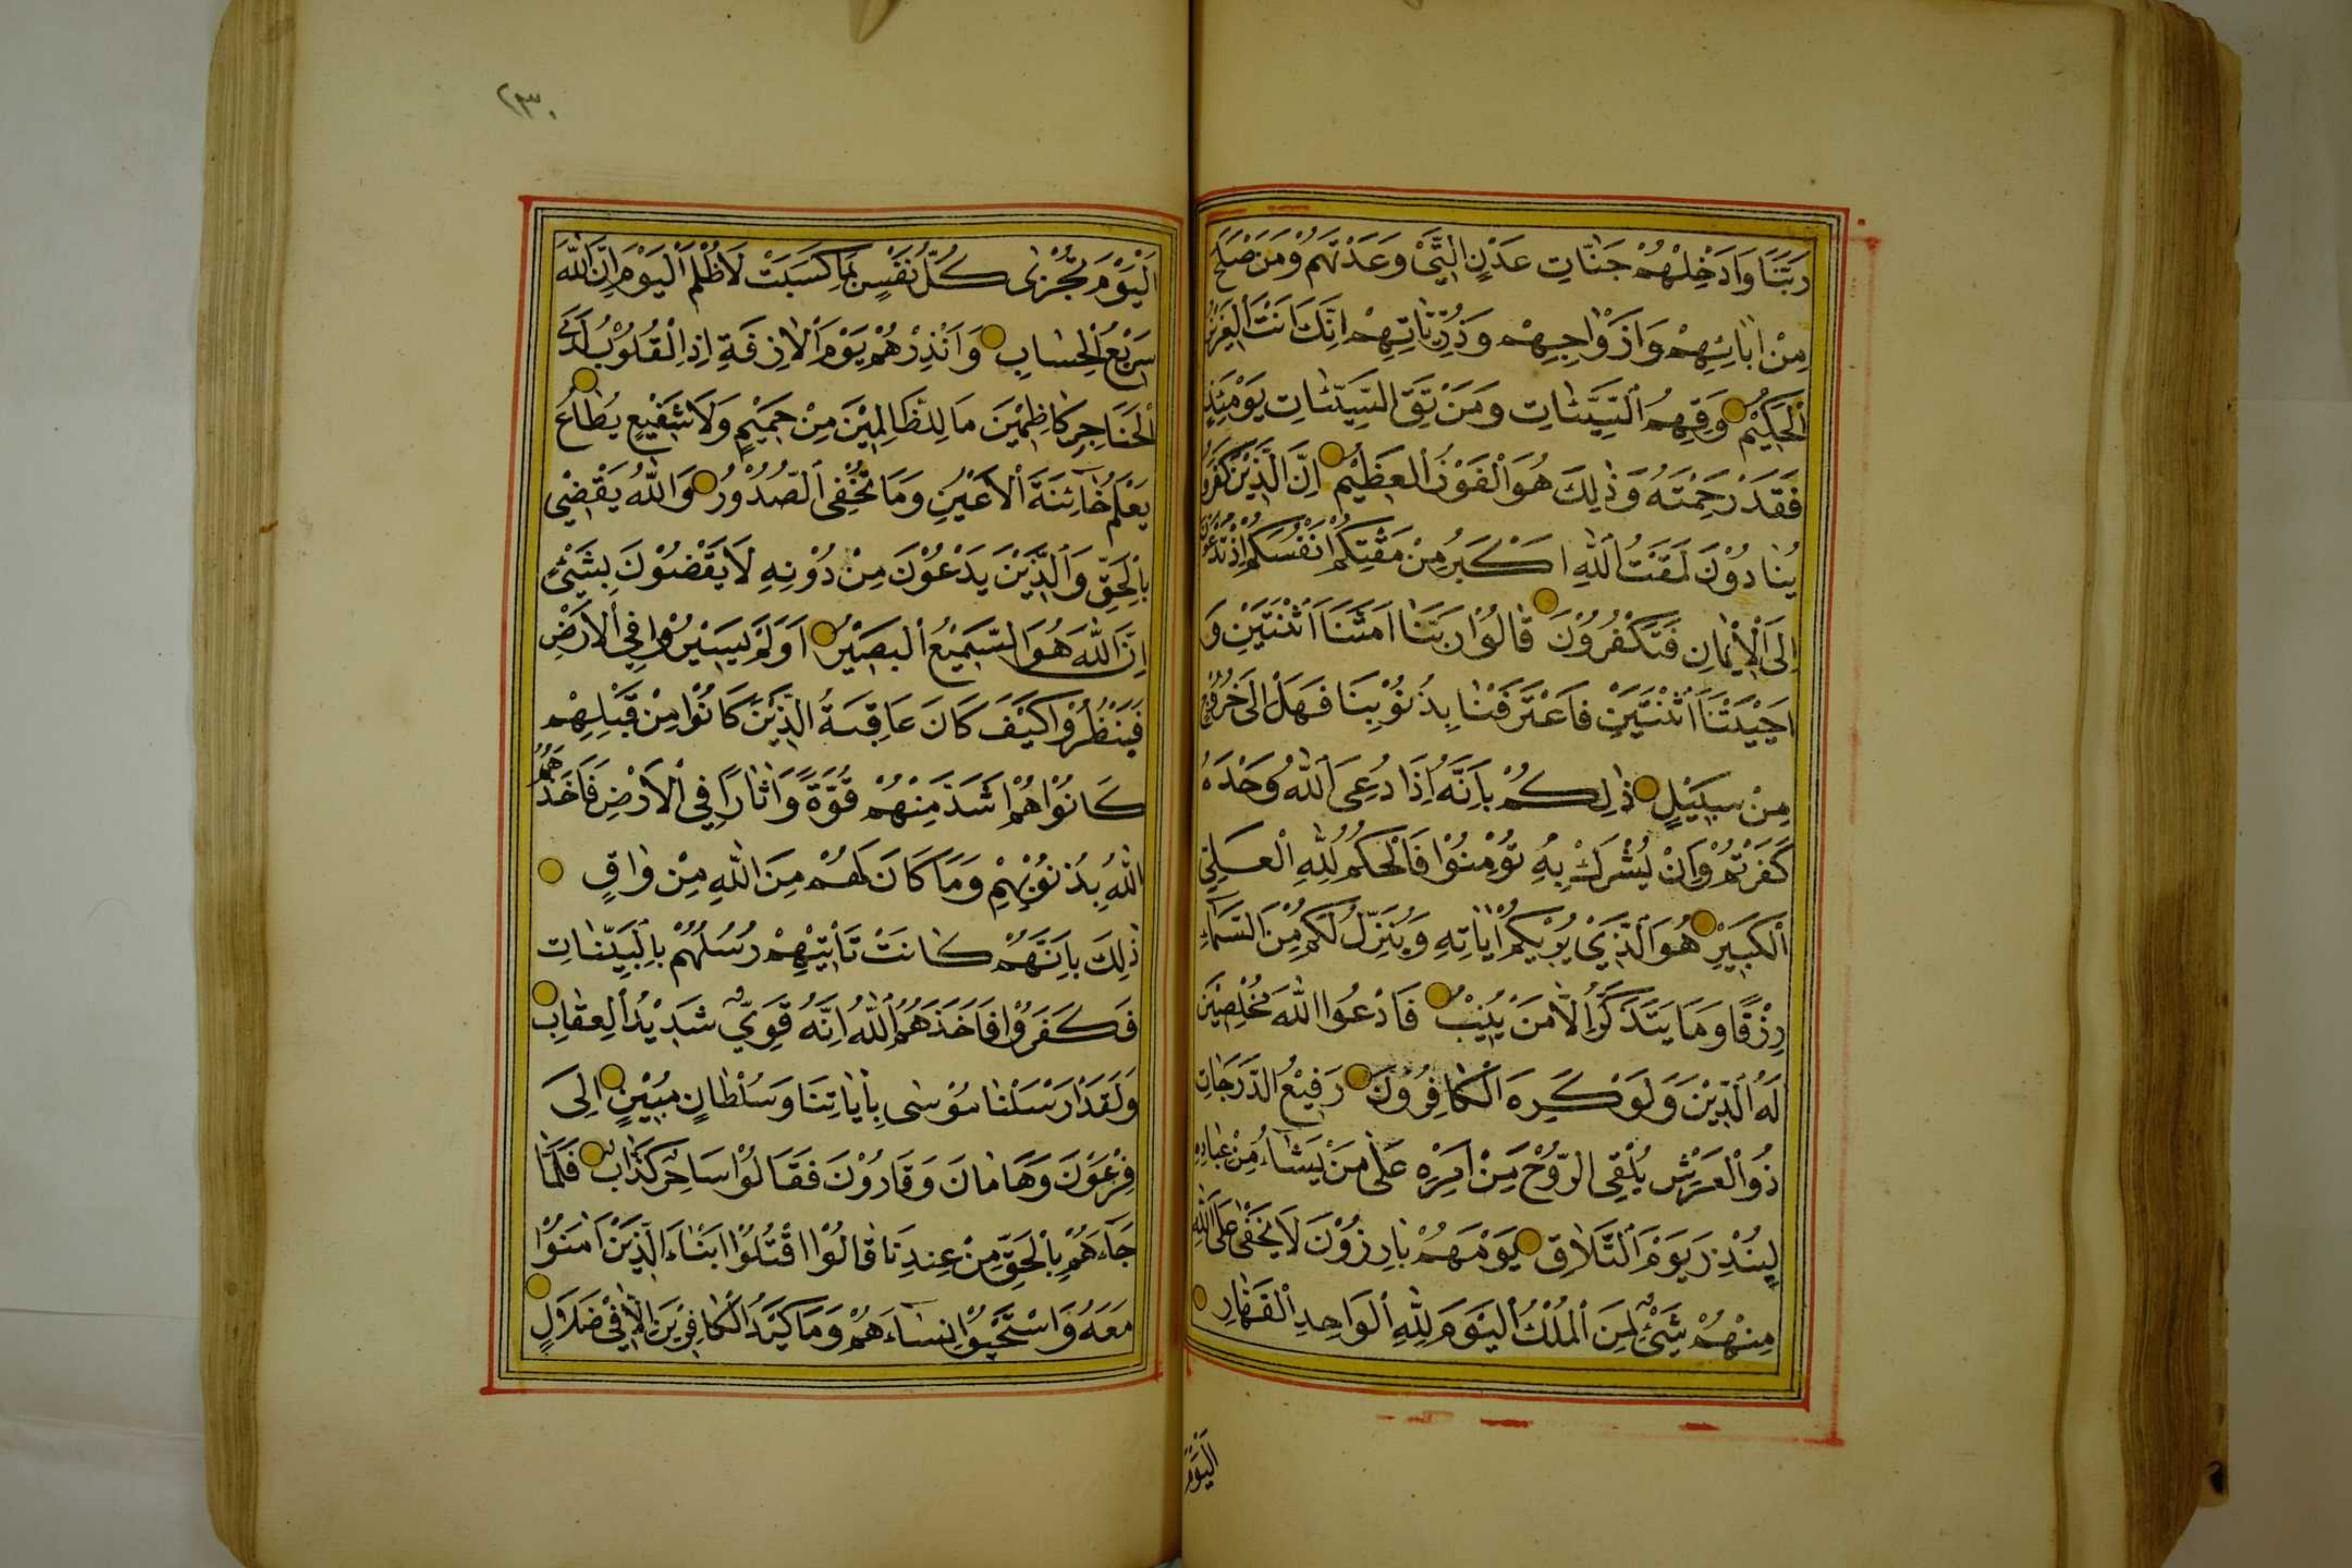 رَبَّنَا وَاَدْخِلْهُمْ جَنَّاتِ عَدْنٍ الَّتِي وَعَدْتَهُمْ وَمَنْ صَلَحَ
مِنْ اٰبَائِهِمْ وَاَزْوَاجِهِمْ وَذُرِّيَّاتِهِمْ اِنَّكَ اَنْتَ الْعَزِيْزُ
الْحَكِيْمُ وَقِهِمُ السَّيِّئَاتِ وَمَنْ تَقِ السَّيِّئَاتِ يَوْمَئِذٍ
فَقَدْ رَحِمْتَهُ وَذٰلِكَ هُوَ الْفَوْزُ الْعَظِيْمُ اِنَّ الَّذِيْنَ كَفَرُوا
يُنَادَوْنَ لَمَقْتُ اللّٰهِ اَكْبَرُ مِنْ مَقْتِكُمْ اَنْفُسَكُمْ اِذْ تُدْعَوْنَ
اِلَى الْاِيْمَانِ فَتَكْفُرُوْنَ قَالُوْا رَبَّنَا اَمَتَّنَا اثْنَتَيْنِ وَ
اَحْيَيْتَنَا اثْنَتَيْنِ فَاعْتَرَفْنَا بِذُنُوْبِنَا فَهَلْ اِلٰى خُرُوْجٍ
مِنْ سَبِيْلٍ ذٰلِكُمْ بِاَنَّهُ اِذَا دُعِيَ اللّٰهُ وَحْدَهُ
كَفَرْتُمْ وَاِنْ يُشْرَكْ بِهِ تُؤْمِنُوْا فَالْحُكْمُ لِلّٰهِ الْعَلِيِّ
الْكَبِيْرِ هُوَ الَّذِيْ يُرِيْكُمْ اٰيَاتِهِ وَيُنَزِّلُ لَكُمْ مِنَ السَّمَاءِ
رِزْقًا وَمَا يَتَذَكَّرُ اِلَّا مَنْ يُنِيْبُ فَادْعُوا اللّٰهَ مُخْلِصِيْنَ
لَهُ الدِّيْنَ وَلَوْ كَرِهَ الْكَافِرُوْنَ رَفِيْعُ الدَّرَجَاتِ
ذُو الْعَرْشِ يُلْقِي الرُّوْحَ مِنْ اَمْرِهِ عَلٰى مَنْ يَشَاءُ مِنْ عِبَادِهِ
لِيُنْذِرَ يَوْمَ التَّلَاقِ يَوْمَ هُمْ بَارِزُوْنَ لَا يَخْفٰى عَلَى اللّٰهِ
مِنْهُمْ شَيْءٌ لِمَنِ الْمُلْكُ الْيَوْمَ لِلّٰهِ الْوَاحِدِ الْقَهَّارِ
اَلْيَوْمَ
٢٣٠
اَلْيَوْمَ تُجْزٰى كُلُّ نَفْسٍ بِمَا كَسَبَتْ لَا ظُلْمَ الْيَوْمَ اِنَّ اللّٰهَ
سَرِيْعُ الْحِسَابِ وَاَنْذِرْهُمْ يَوْمَ الْاٰزِفَةِ اِذِ الْقُلُوْبُ لَدَى
الْحَنَاجِرِ كَاظِمِيْنَ مَا لِلظَّالِمِيْنَ مِنْ حَمِيْمٍ وَلَا شَفِيْعٍ يُطَاعُ
يَعْلَمُ خَائِنَةَ الْاَعْيُنِ وَمَا تُخْفِي الصُّدُوْرُ وَاللّٰهُ يَقْضِيْ
بِالْحَقِّ وَالَّذِيْنَ يَدْعُوْنَ مِنْ دُوْنِهِ لَا يَقْضُوْنَ بِشَيْءٍ
اِنَّ اللّٰهَ هُوَ السَّمِيْعُ الْبَصِيْرُ اَوَلَمْ يَسِيْرُوْا فِي الْاَرْضِ
فَيَنْظُرُوْا كَيْفَ كَانَ عَاقِبَةُ الَّذِيْنَ كَانُوْا مِنْ قَبْلِهِمْ
كَانُوْا هُمْ اَشَدَّ مِنْهُمْ قُوَّةً وَاٰثَارًا فِي الْاَرْضِ فَاَخَذَهُمُ
اللّٰهُ بِذُنُوْبِهِمْ وَمَا كَانَ لَهُمْ مِنَ اللّٰهِ مِنْ وَاقٍ
ذٰلِكَ بِاَنَّهُمْ كَانَتْ تَأْتِيْهِمْ رُسُلُهُمْ بِالْبَيِّنَاتِ
فَكَفَرُوْا فَاَخَذَهُمُ اللّٰهُ اِنَّهُ قَوِيٌّ شَدِيْدُ الْعِقَابِ
وَلَقَدْ اَرْسَلْنَا مُوْسٰى بِاٰيَاتِنَا وَسُلْطَانٍ مُبِيْنٍ اِلٰى
فِرْعَوْنَ وَهَامَانَ وَقَارُوْنَ فَقَالُوْا سَاحِرٌ كَذَّابٌ فَلَمَّا
جَاءَهُمْ بِالْحَقِّ مِنْ عِنْدِنَا قَالُوْا اقْتُلُوْا اَبْنَاءَ الَّذِيْنَ اٰمَنُوْا
مَعَهُ وَاسْتَحْيُوْا نِسَاءَهُمْ وَمَا كَيْدُ الْكَافِرِيْنَ اِلَّا فِيْ ضَلَالٍ